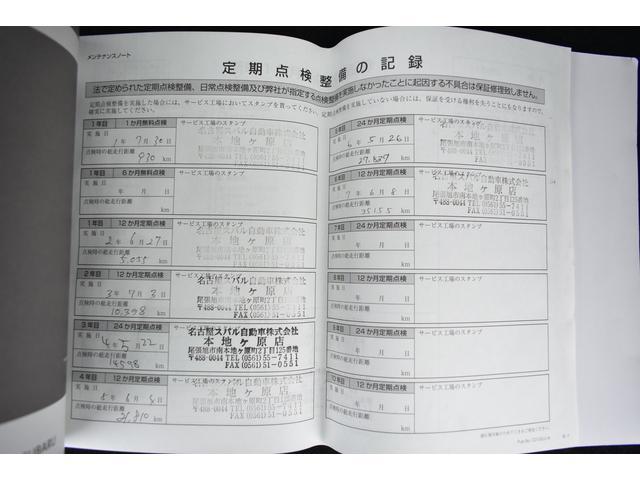 メンテナンスノート
定期点検整備の記録
法で定められた定期点検整備、日常点検整備及び弊社が指定する点検整備を実施しなかったことに起因する不具合は保証修理致しません。
定期点検整備を実施した場合には、サービス工場においてスタンプを貰ってください。定期点検整備を実施していない場合には、保証を受ける権利を失うことになりますので、
確実に実施してください。
1年目 1か月無料点検 サービス工場のスタンプ
実施日
1年 7月 30日
名古屋スバル自動車株式会社
本地ヶ原店
点検時の総走行距離
930 km
1年目 6か月無料点検 サービス工場のスタンプ
実施日
年 月 日
点検時の総走行距離
km
1年目 12か月定期点検 サービス工場のスタンプ
実施日
2年 6月 27日
名古屋スバル自動車株式会社
本地ヶ原店
点検時の総走行距離
5,035 km
2年目 12か月定期点検 サービス工場のスタンプ
実施日
3年 7月 3日
名古屋スバル自動車株式会社
本地ヶ原店
尾張旭市南本地ヶ原町2丁目125番地
点検時の総走行距離
10,398 km
3年目 24か月定期点検 サービス工場のスタンプ
実施日
4年 5月 22日
名古屋スバル自動車株式会社
本地ヶ原店
尾張旭市南本地ヶ原町2丁目125番地
〒488-0044 TEL(0561)55-7411
FAX(0561)51-0551
点検時の総走行距離
14598 km
4年目 12か月定期点検 サービス工場のスタンプ
実施日
5年 6月 日
名古屋スバル自動車株式会社
本地ヶ原店
点検時の総走行距離
km
24か月定期点検 サービス工場のスタンプ
実施日
6年 5月 26日
点検時の総走行距離
27,839 km
12か月定期点検 サービス工場のスタンプ
実施日
7年 6月 8日
名古屋スバル自動車株式会社
本地ヶ原店
尾張旭市南本地ヶ原町2丁目125番地
〒488-0044 TEL(0561)55-7411
FAX(0561)51-0551
点検時の総走行距離
35155 km
7年目 24か月定期点検 サービス工場のスタンプ
実施日
年 月 日
点検時の総走行距離
km
12か月定期点検 サービス工場のスタンプ
実施日
年 月 日
点検時の総走行距離
km
24か月定期点検 サービス工場のスタンプ
実施日
年 月 日
点検時の総走行距離
km
12か月定期点検 サービス工場のスタンプ
実施日
年 月 日
点検時の総走行距離
km
SUBARU